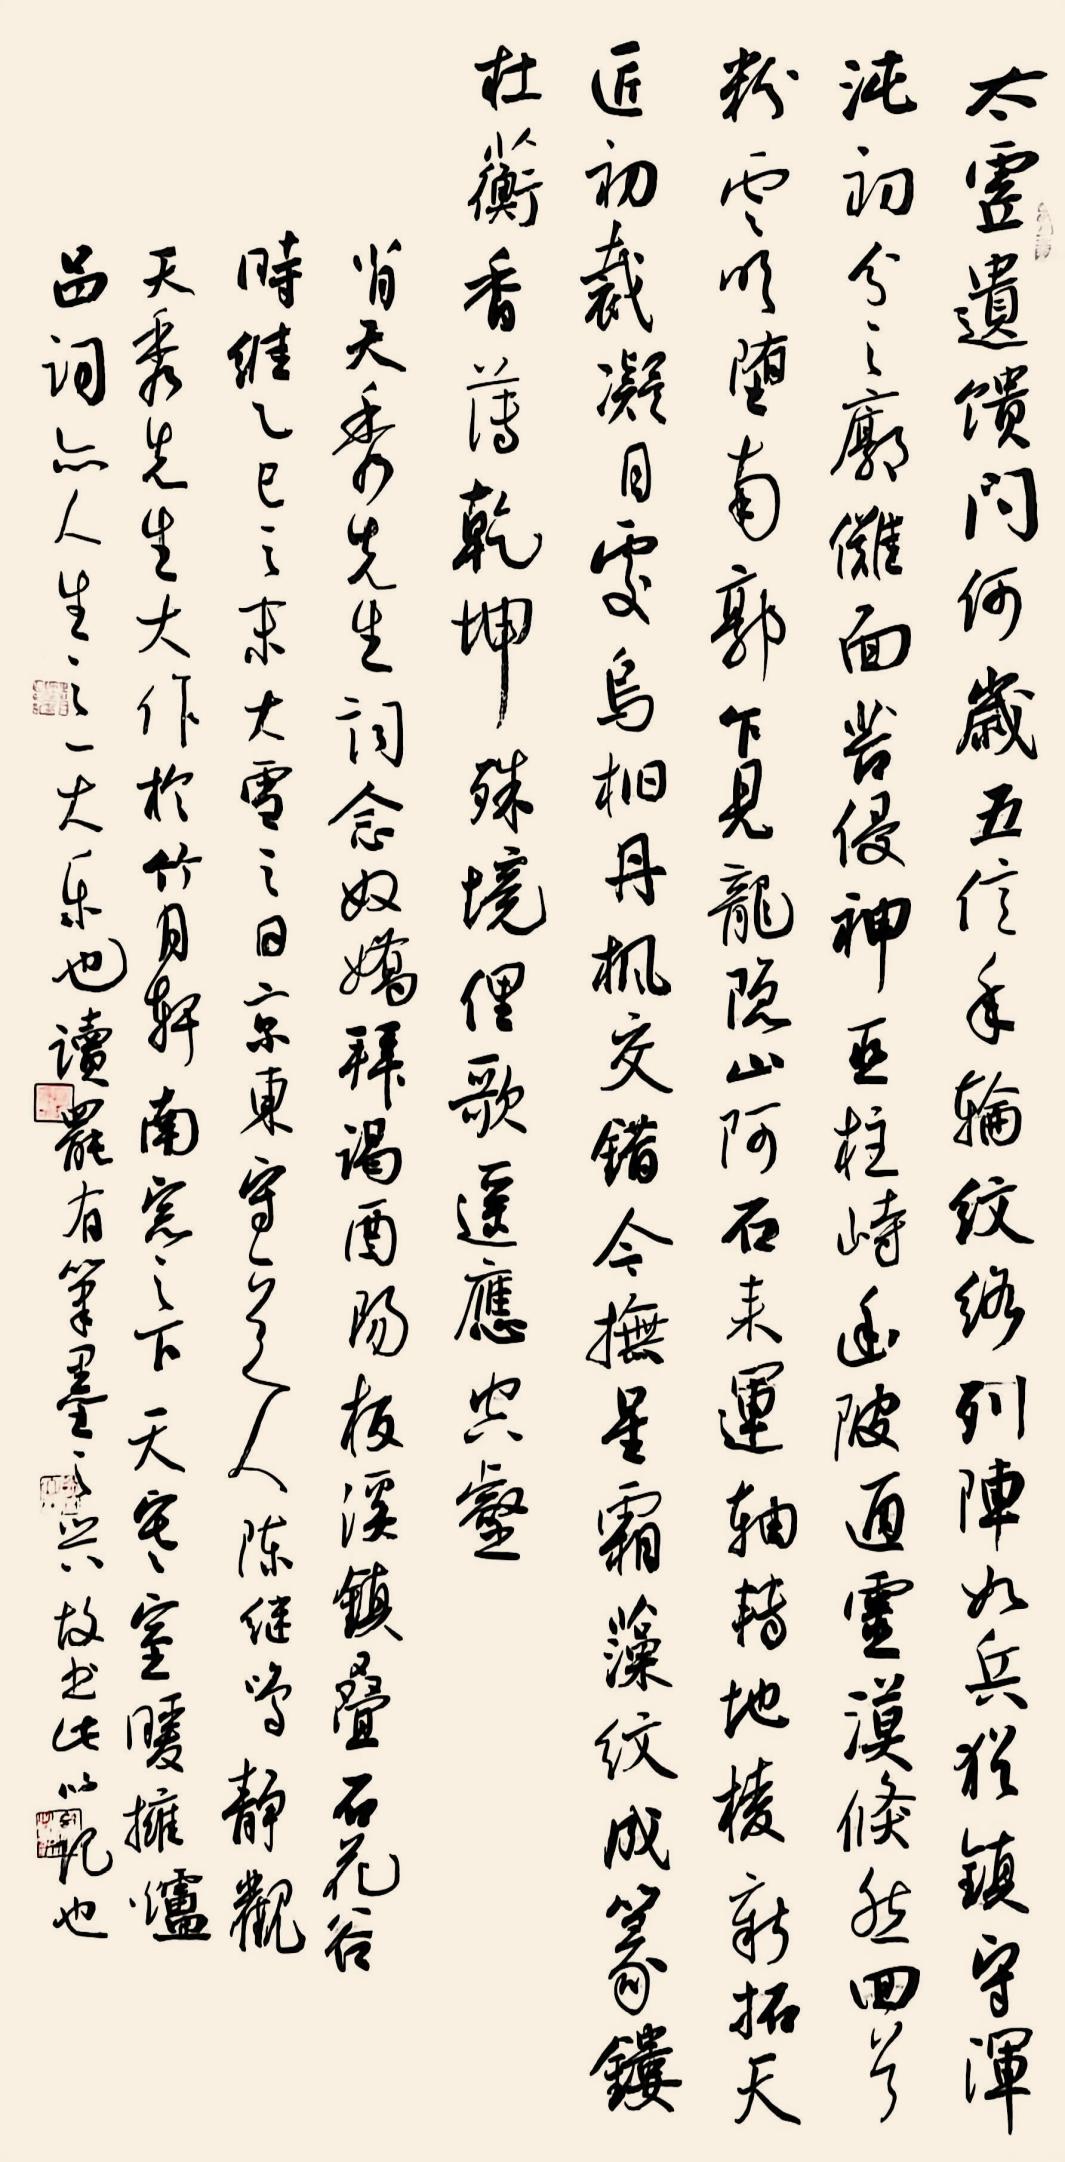 太虛遺馈問何歲五信手輪紋絡列陣如兵猶鎮守渾
沌初分之廓儺面苔侵神亞柱峙幽陂通靈漠倏然回首
粉雲収堕南郭乍見龍隐山阿石来運軸轉地棱新拓天
匠初裁凝目處烏桕丹枫交錯今撫星霜藻紋成篆鏤
杜蘅香薄乾坤殊境俚歌遥應空壑
肖天秀先生詞念奴嬌拜謁酉陽板溪鎮叠石花谷
時維乙巳之末大雪之日京東守道人陈继鸣静觀
天秀先生大作於竹月軒南窓之下天寒室暖擁爐
品詞亦人生之一大乐也讀罷有筆墨之興故书此以记也